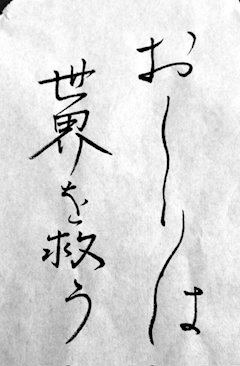 おしりは
世界を救う